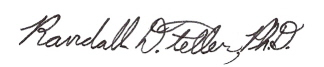 Randall D. Feller, Ph.D.